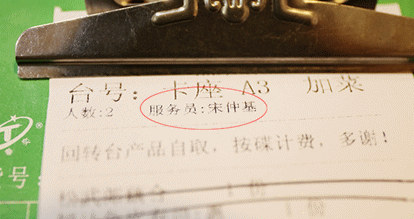 台号: 卡座 A3 加菜
人数:2 服务员:宋仲基
回转台产品自取, 按碟计费, 多谢!
1 份
1 份
号: